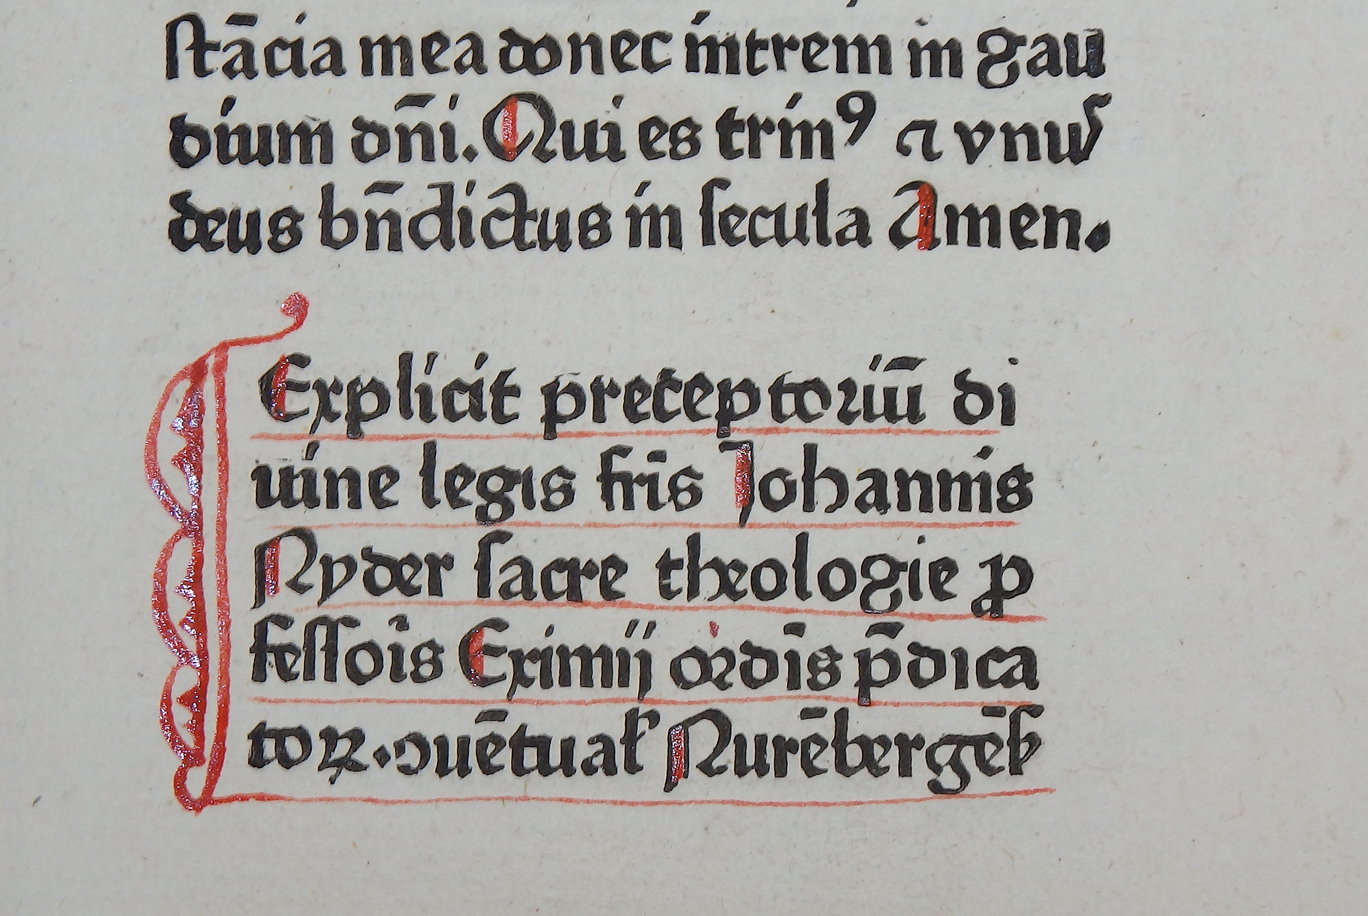 ſtācia mea donec intrem in gau
dium dn̄i. Qui es trinꝰ ⁊ vnus
deus bn̄dictus in ſecula Amen.
Explicit preceptoriū di
uine legis fr̄is Johannis
Nyder ſacre theologie ꝓ
feſſoīs Eximij ordīs p̄dica
toꝝ.ꝯuētual̄ Nurēbergēẜ